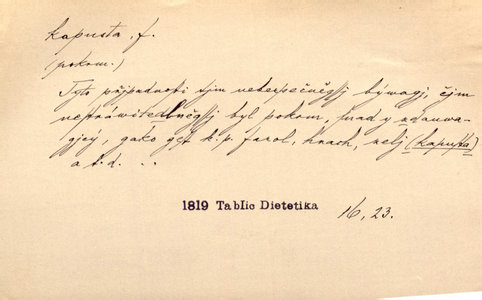 kapusta, f.
(pokrm.)
Tyto případnosti tjm nebezpečněgssj býwagj, čjm
nestráwitedlněgssj byl pokrm, snad y nadauwa-
gjcý, gako gest k. p. fazol, hrach, zelj (kapusta)
a t. d. . .
1819 Tablic Dietetika 16, 23.